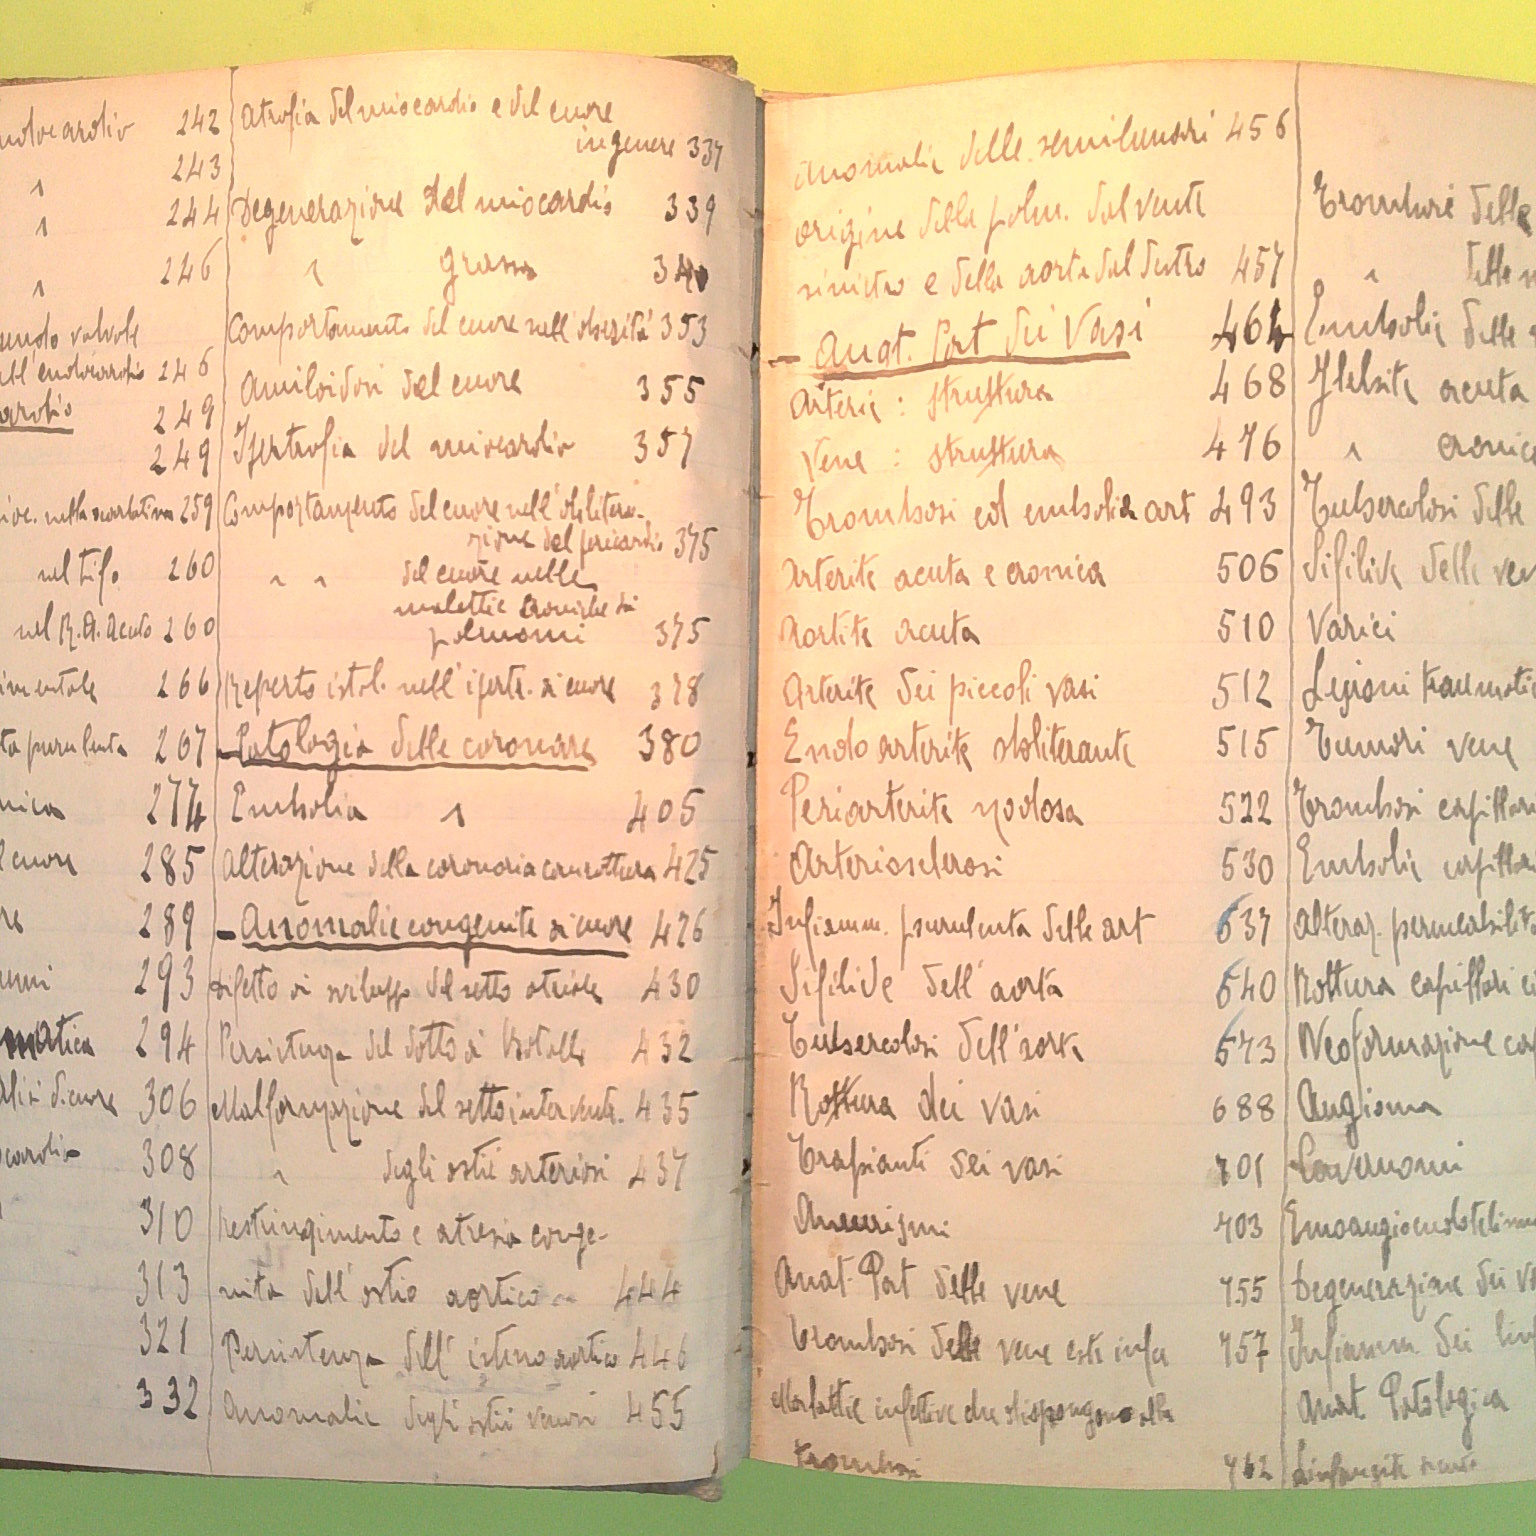 242
243
244
246
valvole
246
249
249
259
nel tifo 260
nel R. A. Acuto 260
266
purulenta 267
274
cuore 285
289
293
294
306
308
310
313
321
332
Atrofia del miocardio e del cuore
in genere 337
Degenerazione del miocardio 339
" grassa 340
Comportamento del cuore nell'obesità 353
Amiloidosi del cuore 355
Ipertrofia del miocardio 357
Comportamento del cuore nell'oblitera-
zione del pericardio 375
" " del cuore nelle
malattie croniche di
polmoni 375
Reperto istol. nell'ipertr. di cuore 378
- Patologia delle coronarie 380
Embolia " 405
Alterazione della coronaria con rottura 425
- Anomalie congenite di cuore 426
Difetto di sviluppo del setto atriale 430
Persistenza del dotto di Botallo 432
Malformazione del setto intervent. 435
" degli ostii arteriosi 437
Restringimento e atresia conge-
nita dell'ostio aortico 444
Persistenza dell'istmo aortico 446
Anomalie degli ostii venosi 455
Anomalie delle semilunari 456
origine della polm. dal vent
sinistro e della aorta dal destro 457
- Anat. Pat dei Vasi 464
Arterie : struttura 468
Vene : struttura 476
Trombosi ed embolia art 493
Arterite acuta e cronica 506
Aortite acuta 510
Arterite dei piccoli vasi 512
Endoarterite obliterante 515
Periarterite nodosa 522
Arteriosclerosi 530
Infiamm. purulenta delle art 637
Sifilide dell'aorta 640
Tubercolosi dell'aorta 673
Rottura dei vasi 688
Trapianti dei vasi 701
Aneurismi 703
Anat. Pat delle vene 755
Trombosi delle vene 757
Malattie infettive che dispongono alla
trombosi 762
Trombosi delle
" delle
Embolie delle
Flebite acuta
" cronica
Tubercolosi delle
Sifilide delle
Varici
Lesioni
Tumori vene
Trombosi
Embolie
Alteraz. permeabilità
Rottura capillari
Neoformazione
Angioma
Cavernomi
Degenerazione dei
Infiamm. dei
Anat. Patologica
Linfangite